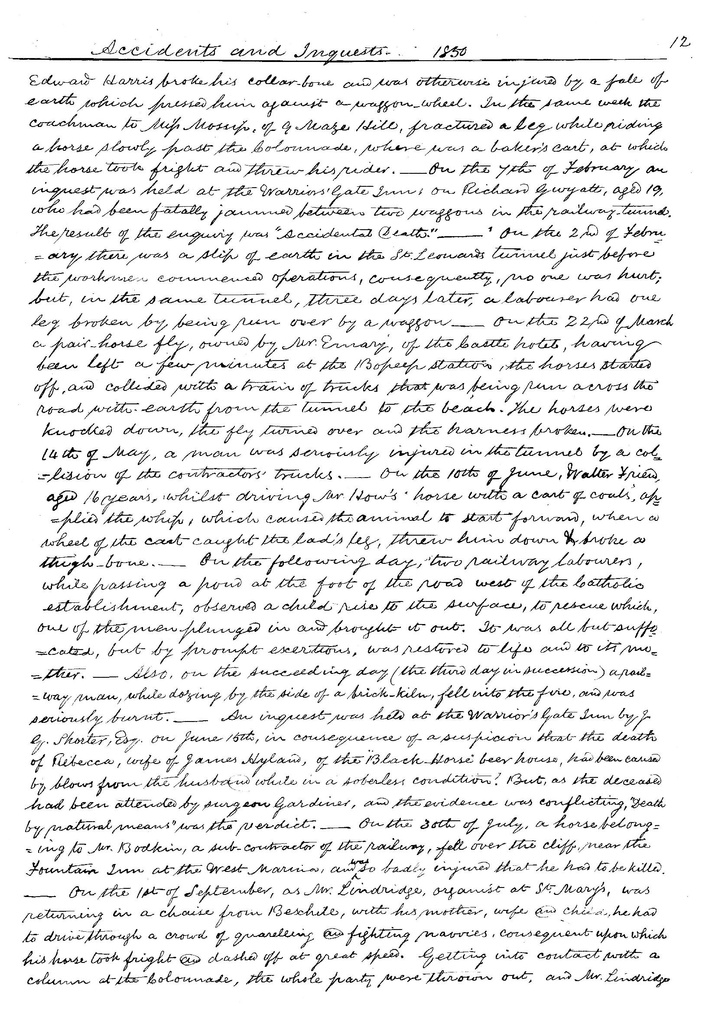 Accidents and Inquests. 1850 12
Edward Harris broke his collar-bone and was otherwise injured by a fall of
earth which pressed him against a waggon-wheel. In the same week the
coachman to Miss Mossip, of 9 Maze Hill, fractured a leg while riding
a horse slowly past the Colonnade, where was a baker's cart, at which
the horse took fright and threw his rider. — On the 7th of February an
inquest was held at the Warriors' Gate Inn, on Richard Gwyatt, aged 19,
who had been fatally jammed between two waggons in the railway-tunnel.
The result of the enquiry was "Accidental Death" — On the 2nd of Febru-
=ary there was a slip of earth in the St. Leonards tunnel just before
the workmen commenced operations, consequently, no one was hurt;
but, in the same tunnel, three days later, a labourer had one
leg broken by being run over by a waggon — On the 22nd of March
a pair-horse fly, owned by Mr. Emary, of the Castle hotel, having
been left a few minutes at the Bopeep Station, the horses started
off, and collided with a train of trucks that was being run across the
road with earth from the tunnel to the beach. The horses were
knocked down, the fly turned over and the harness broken. — On the
14th of May, a man was seriously injured in the tunnel by a col=
=lision of the contractors' trucks. — On the 10th of June, Walter
aged 16 years, whilst driving Mr How's horse with a cart of coals, ap=
=plied the whip, which caused the animal to start forward, when a
wheel of the cart caught the lad's leg, threw him down & broke a
thigh-bone. — On the following day, two railway labourers,
while passing a pond at the foot of the road west of the Catholic
establishment, observed a child rise to the surface, to rescue which,
one of the men plunged in and brought it out. It was all but suffo=
=cated, but by prompt exertions, was restored to life and to its mo=
=ther. — Also, on the succeeding day (the third day in succession) a rail-
=way man, while dozing by the side of a brick-kiln, fell into the fire, and was
seriously burnt. — An inquest was held at the Warrior's Gate Inn by J.
G. Shorter, Esq. on June 15th, in consequence of a suspicion that the death
of Rebecca, wife of James Hyland, of the "Black-Horse" beer house, had been caused
by blows from the husband while in a soberless condition! But, as the deceased
had been attended by surgeon Gardiner, and the evidence was conflicting, "Death
by natural means" was the verdict. — On the 30th of July, a horse belong=
=ing to Mr. Bodkin, a sub-contractor of the railway, fell over the cliff, near the
Fountain Inn at the West Marina, and was so badly injured that he had to be killed.
— On the 1st of September, as Mr. Lindridge, organist at St. Mary's, was
returning in a chaise from Bexhill, with his mother, wife and child, he had
to drive through a crowd of quarelling and fighting navvies, consequent upon which
his horse took fright and dashed off at great speed. Getting into contact with a
column at the Colonnade, the whole party were thrown out, and Mr. Lindridge